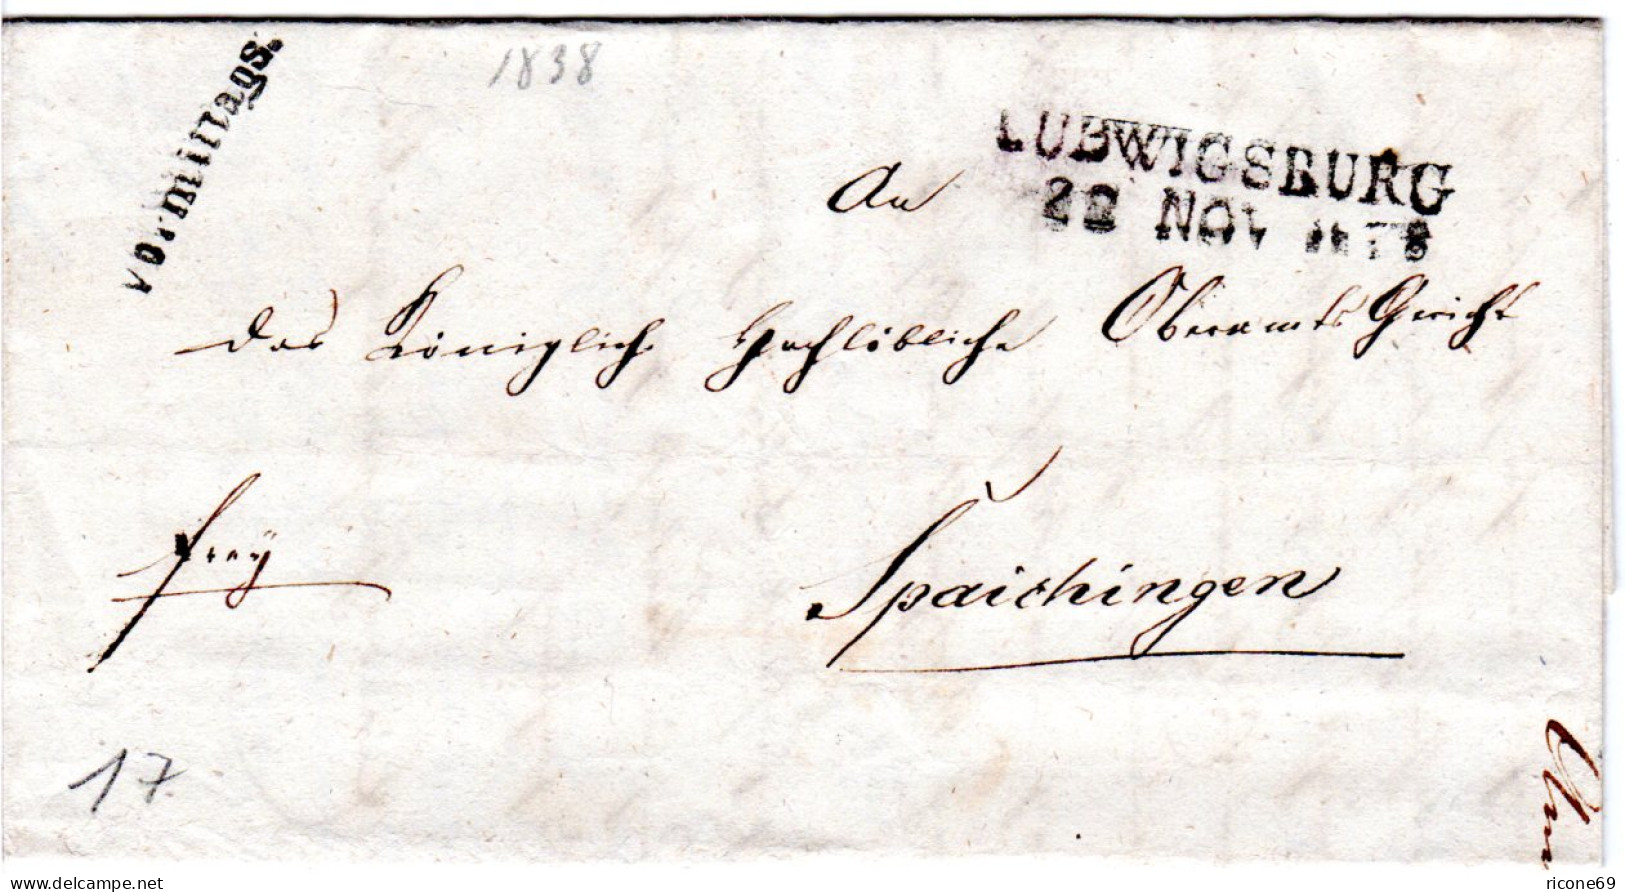 1838
Vormittags.
LUDWIGSBURG
22 NOV 1838
An
das Königliche Hochlöbliche Oberamts Gericht
frey
Spaichingen
17
delcampe.net
ricone69